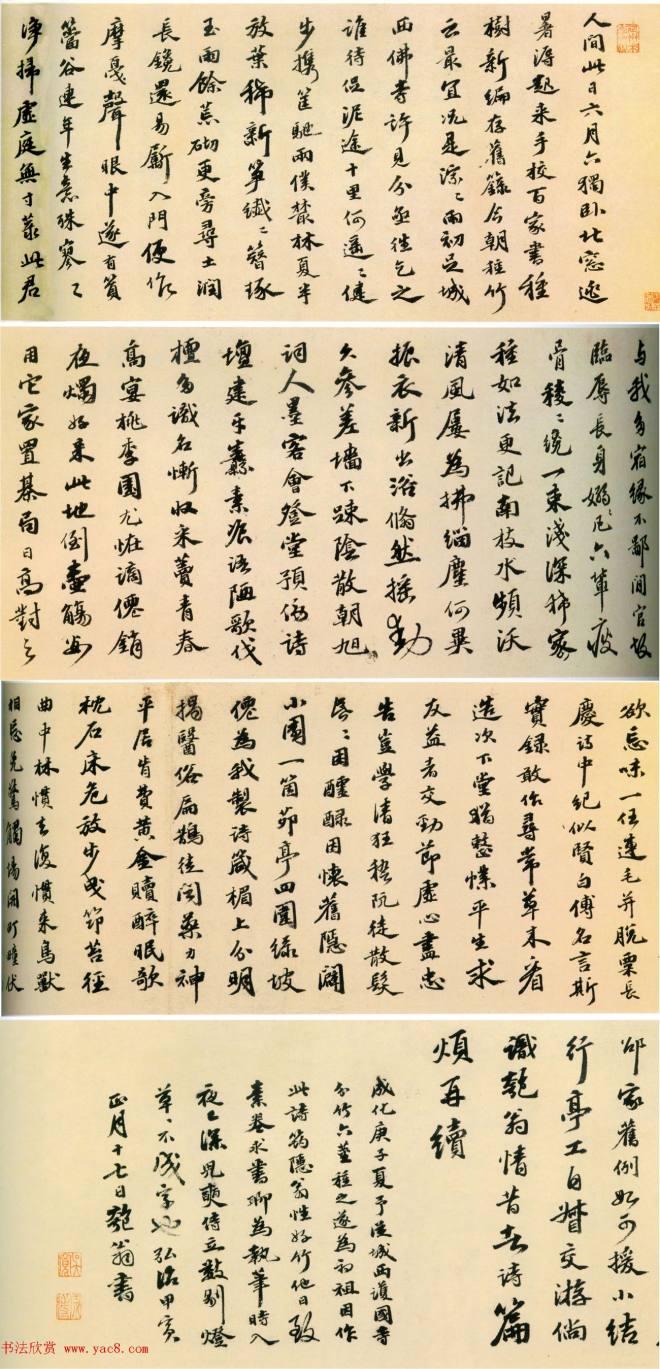 人间此日六月六独卧北窓逃
暑溽起来手校百家书种
树新编存旧录今朝种竹
云最宜况是深〻雨初足城
西佛寺许见分亟往乞之
谁待促泥途十里何遥〻健
步携筐驰两仆丛林夏半
放叶稀新笋纤〻簪琢
玉雨馀荒砌更旁寻土润
长镵还易斸入门便作
摩戛声眼中遂有筼
筜谷连年生意殊寥〻
净扫虚庭无寸蓛此君
与我多宿缘不鄙闲官故
临辱长身嫋〻凡六辈瘦
骨稜〻绕一束浅深稀密
种如法更记南枝水频沃
清风屡为拂缁尘何异
振衣新出浴翛然摇动
久参差墙下疎阴散朝旭
词人墨客会登堂预偫诗
坛建牙纛素
语陋歌伐
檀多识名惭收采薋青春
高宴桃李园尤怪谪僊销
夜烛好来此地倒壶觞安
用它家置棋局日高对之
欲忘味一任连毛并脱粟长
庆诗中纪似贤白傅名言斯
实录敢作寻常草木看
造次下堂犹慭
平生求
友益者交劲节虚心尽忠
告岂学清狂嵇阮徒散髪
昏〻困醽醁因怀旧隐
小园一箇茆亭四围绿坡
僊为我制诗箴楣上分明
揭医俗扁鹊徒闻药力神
平居肯费黄金赎醉眠歌
枕石床危放步曳筇苔径
曲中林惯去复惯来鸟兽
相忘免惊触场开町疃伏
邻家旧例如可援小结
行亭工自督交游倘
识匏翁情昔去诗篇
烦再续
成化庚子夏予从城西护国寺
分竹六茎种之遂为初祖因作
此诗筠隐翁性好竹他日致
素卷求书聊为执笔时入
夜已深儿奭侍立鼓剔灯
草〻不成字也弘治甲寅
正月十七日匏翁书
书法欣赏 www.yac8.com